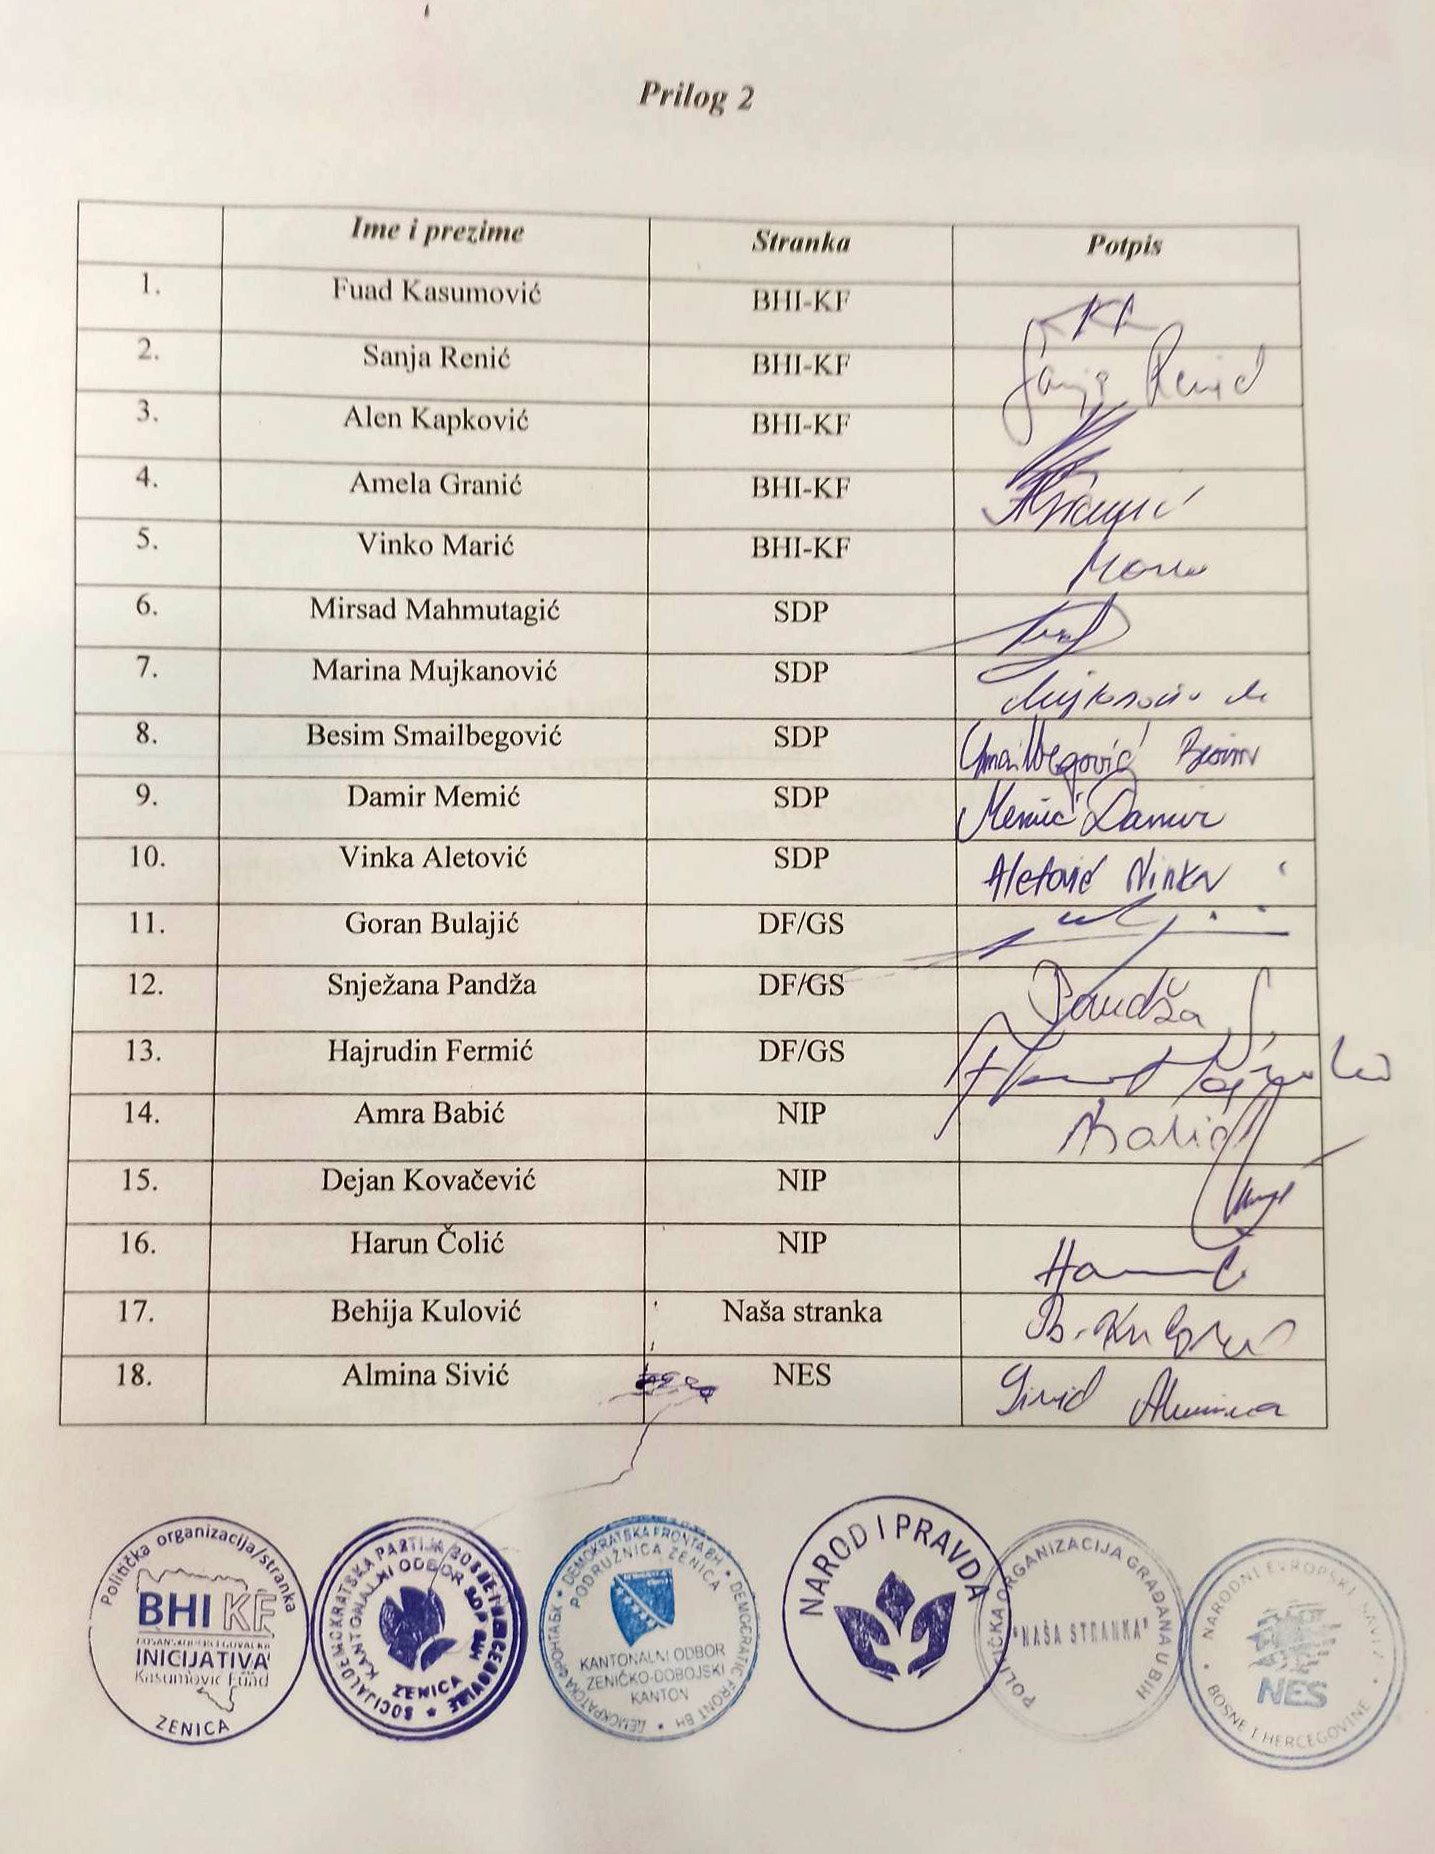 Prilog 2
Ime i prezime Stranka Potpis
1. Fuad Kasumović BHI-KF
2. Sanja Renić BHI-KF Sanja Renić
3. Alen Kapković BHI-KF
4. Amela Granić BHI-KF AGranić
5. Vinko Marić BHI-KF
6. Mirsad Mahmutagić SDP
7. Marina Mujkanović SDP Mujkanović M
8. Besim Smailbegović SDP Smailbegović Besim
9. Damir Memić SDP Memić Damir
10. Vinka Aletović SDP Aletović Vinka
11. Goran Bulajić DF/GS
12. Snježana Pandža DF/GS Pandža S.
13. Hajrudin Fermić DF/GS
14. Amra Babić NIP ABabić
15. Dejan Kovačević NIP
16. Harun Čolić NIP
17. Behija Kulović Naša stranka B. Kulović
18. Almina Sivić NES Sivić Almina
Politička organizacija/stranka
BHI KF
BOSANSKOHERCEGOVAČKA
INICIJATIVA
Kasumović Fuad
ZENICA
SOCIJALDEMOKRATSKA PARTIJA BOSNE I HERCEGOVINE
KANTONALNI ODBOR SDP BIH
ZENICA
DEMOKRATSKA FRONTA BH • DEMOCRATIC FRONT BH • ДЕМОКРАТСКА ФРОНТА БХ
PODRUŽNICA ZENICA
KANTONALNI ODBOR
ZENIČKO-DOBOJSKI
KANTON
NAROD I PRAVDA
POLITIČKA ORGANIZACIJA GRAĐANA U BIH
"NAŠA STRANKA"
NARODNI EVROPSKI SAVEZ
NES
BOSNE I HERCEGOVINE